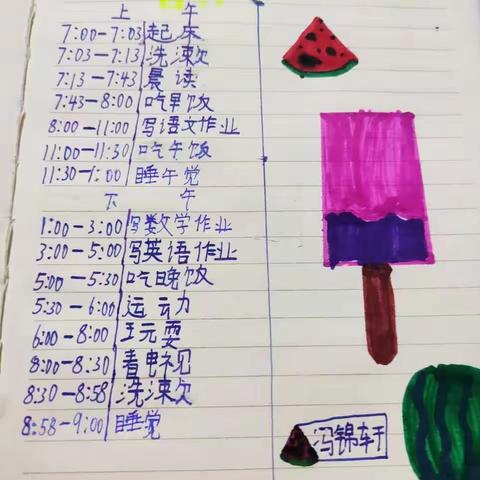 上 午
7:00-7:03 起床
7:03-7:13 洗漱
7:13-7:43 晨读
7:43-8:00 吃早饭
8:00-11:00 写语文作业
11:00-11:30 吃午饭
11:30-1:00 睡午觉
下 午
1:00-3:00 写数学作业
3:00-5:00 写英语作业
5:00-5:30 吃晚饭
5:30-6:00 运动
6:00-8:00 玩耍
8:00-8:30 看电视
8:30-8:58 洗漱
8:58-9:00 睡觉
冯锦轩